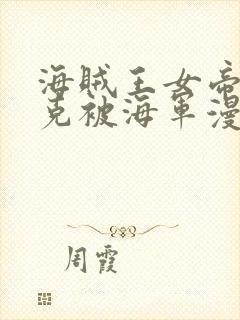 海贼王女帝
克被海军漫
周霞